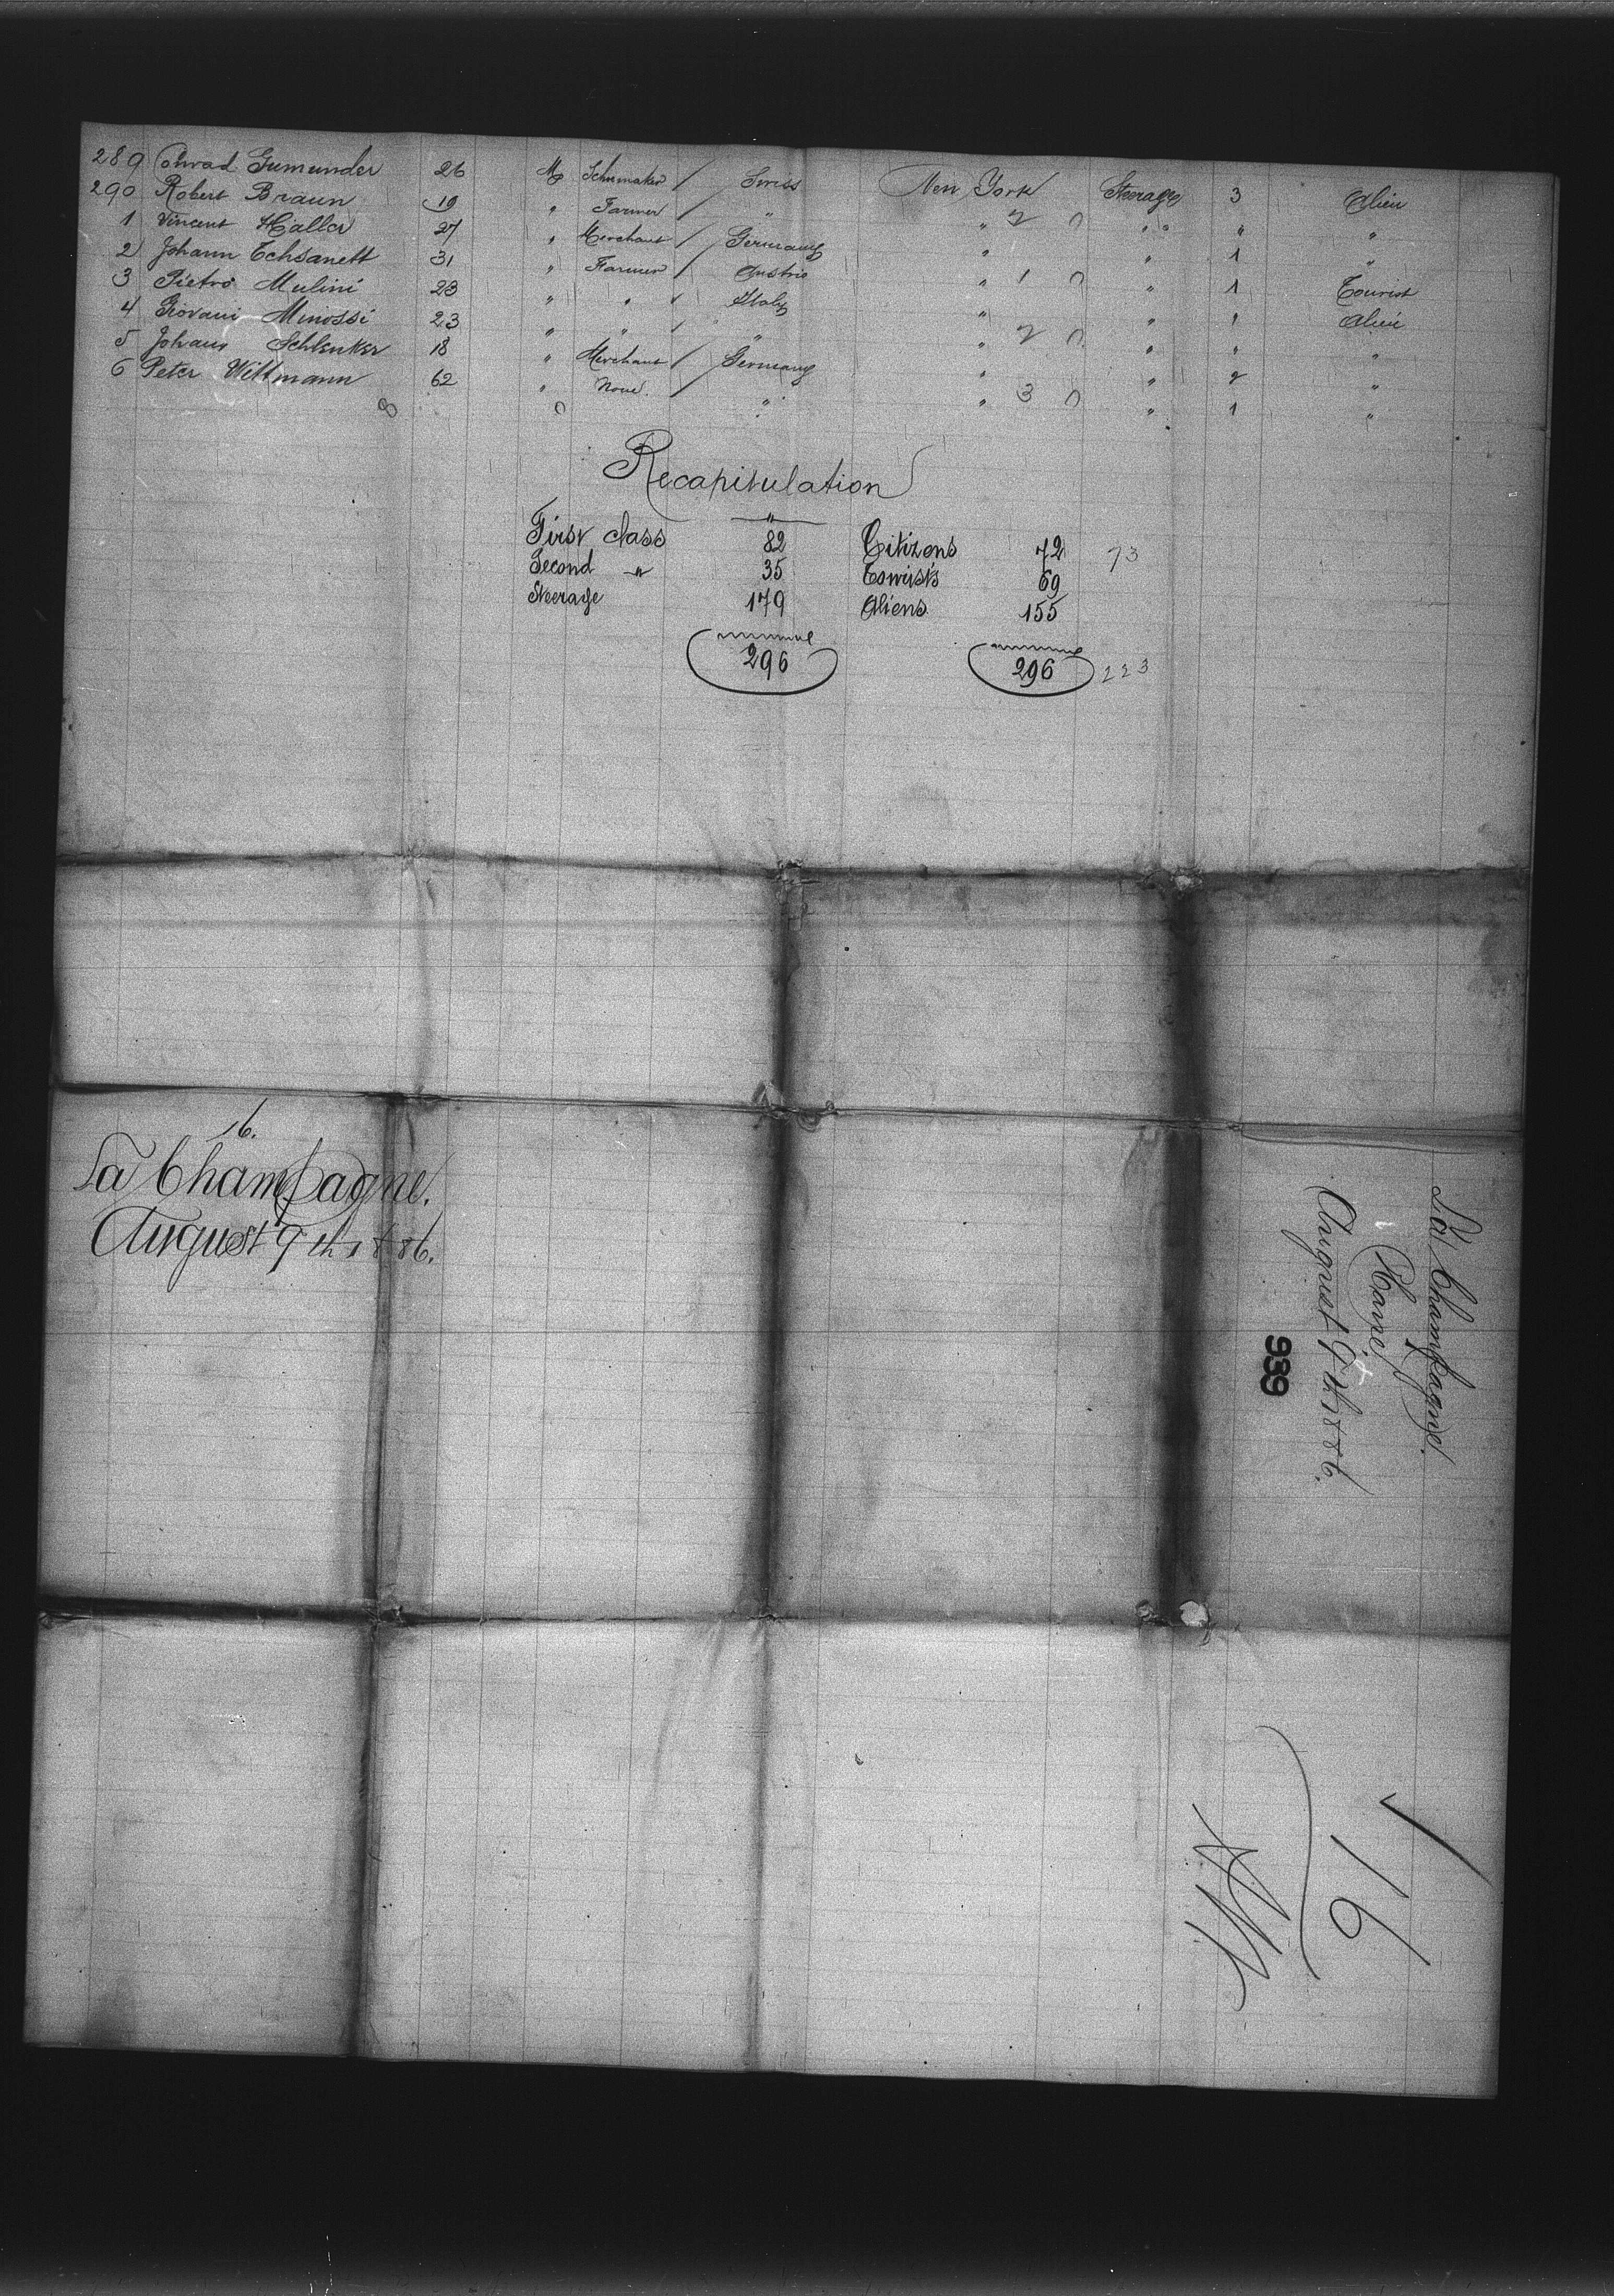 289 Conrad Gumunder 26 M Schumaker / Swiss New York Steerage 3 Alien
290 Robert Braun 19 " Farmer / " " 2 0 " " " "
1 Vincent Haller 27 " Merchant / Germany " " 1 "
2 Johann Tchsanett 31 " Farmer / Austria " 1 0 " 1 Tourist
3 Pietro Mulini 23 " " / Italy " " 1 Alien
4 Giovani Minossi 23 " " / " " 2 0 " " "
5 Johann Schlenker 18 " Merchant / Germany " " 2 "
6 Peter Wittmann 62 " None. / " " 3 0 " 1 "
8 0
Recapitulation
"
First class 82 Citizens 72 73
Second " 35 Tourists 69
Steerage 179 Aliens 155
296 296 223
16.
La Champagne.
August 9th 1886.
La Champagne.
Havre
August 9th 1886.
939
16